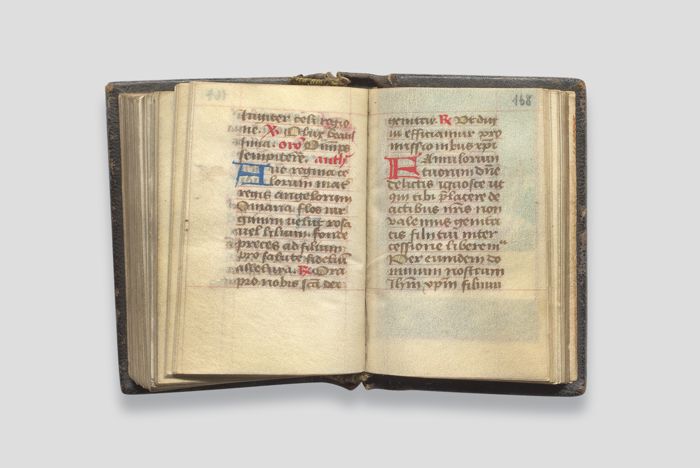 ne. ℟ O
ma. oro Omps
sempiterne. anth
Aue regina ce
lorum mater
regis angelorum
O maria flos uir
ginum uelut rosa
uel lilium funde
preces ad filium
pro salute fidelium
℟ Ora
pro nobis sca dei
168
genitrix. ℟ Vt digni
efficiamur pro
missionibus xpi
Famulorum
tuorum dne
delictis ignosce ut
qui tibi placere de
actibus nris non
valemus genitri
cis filii tui inter
cessione liberemur
Per eumdem do
minum nostrum
Ihm xpm filium